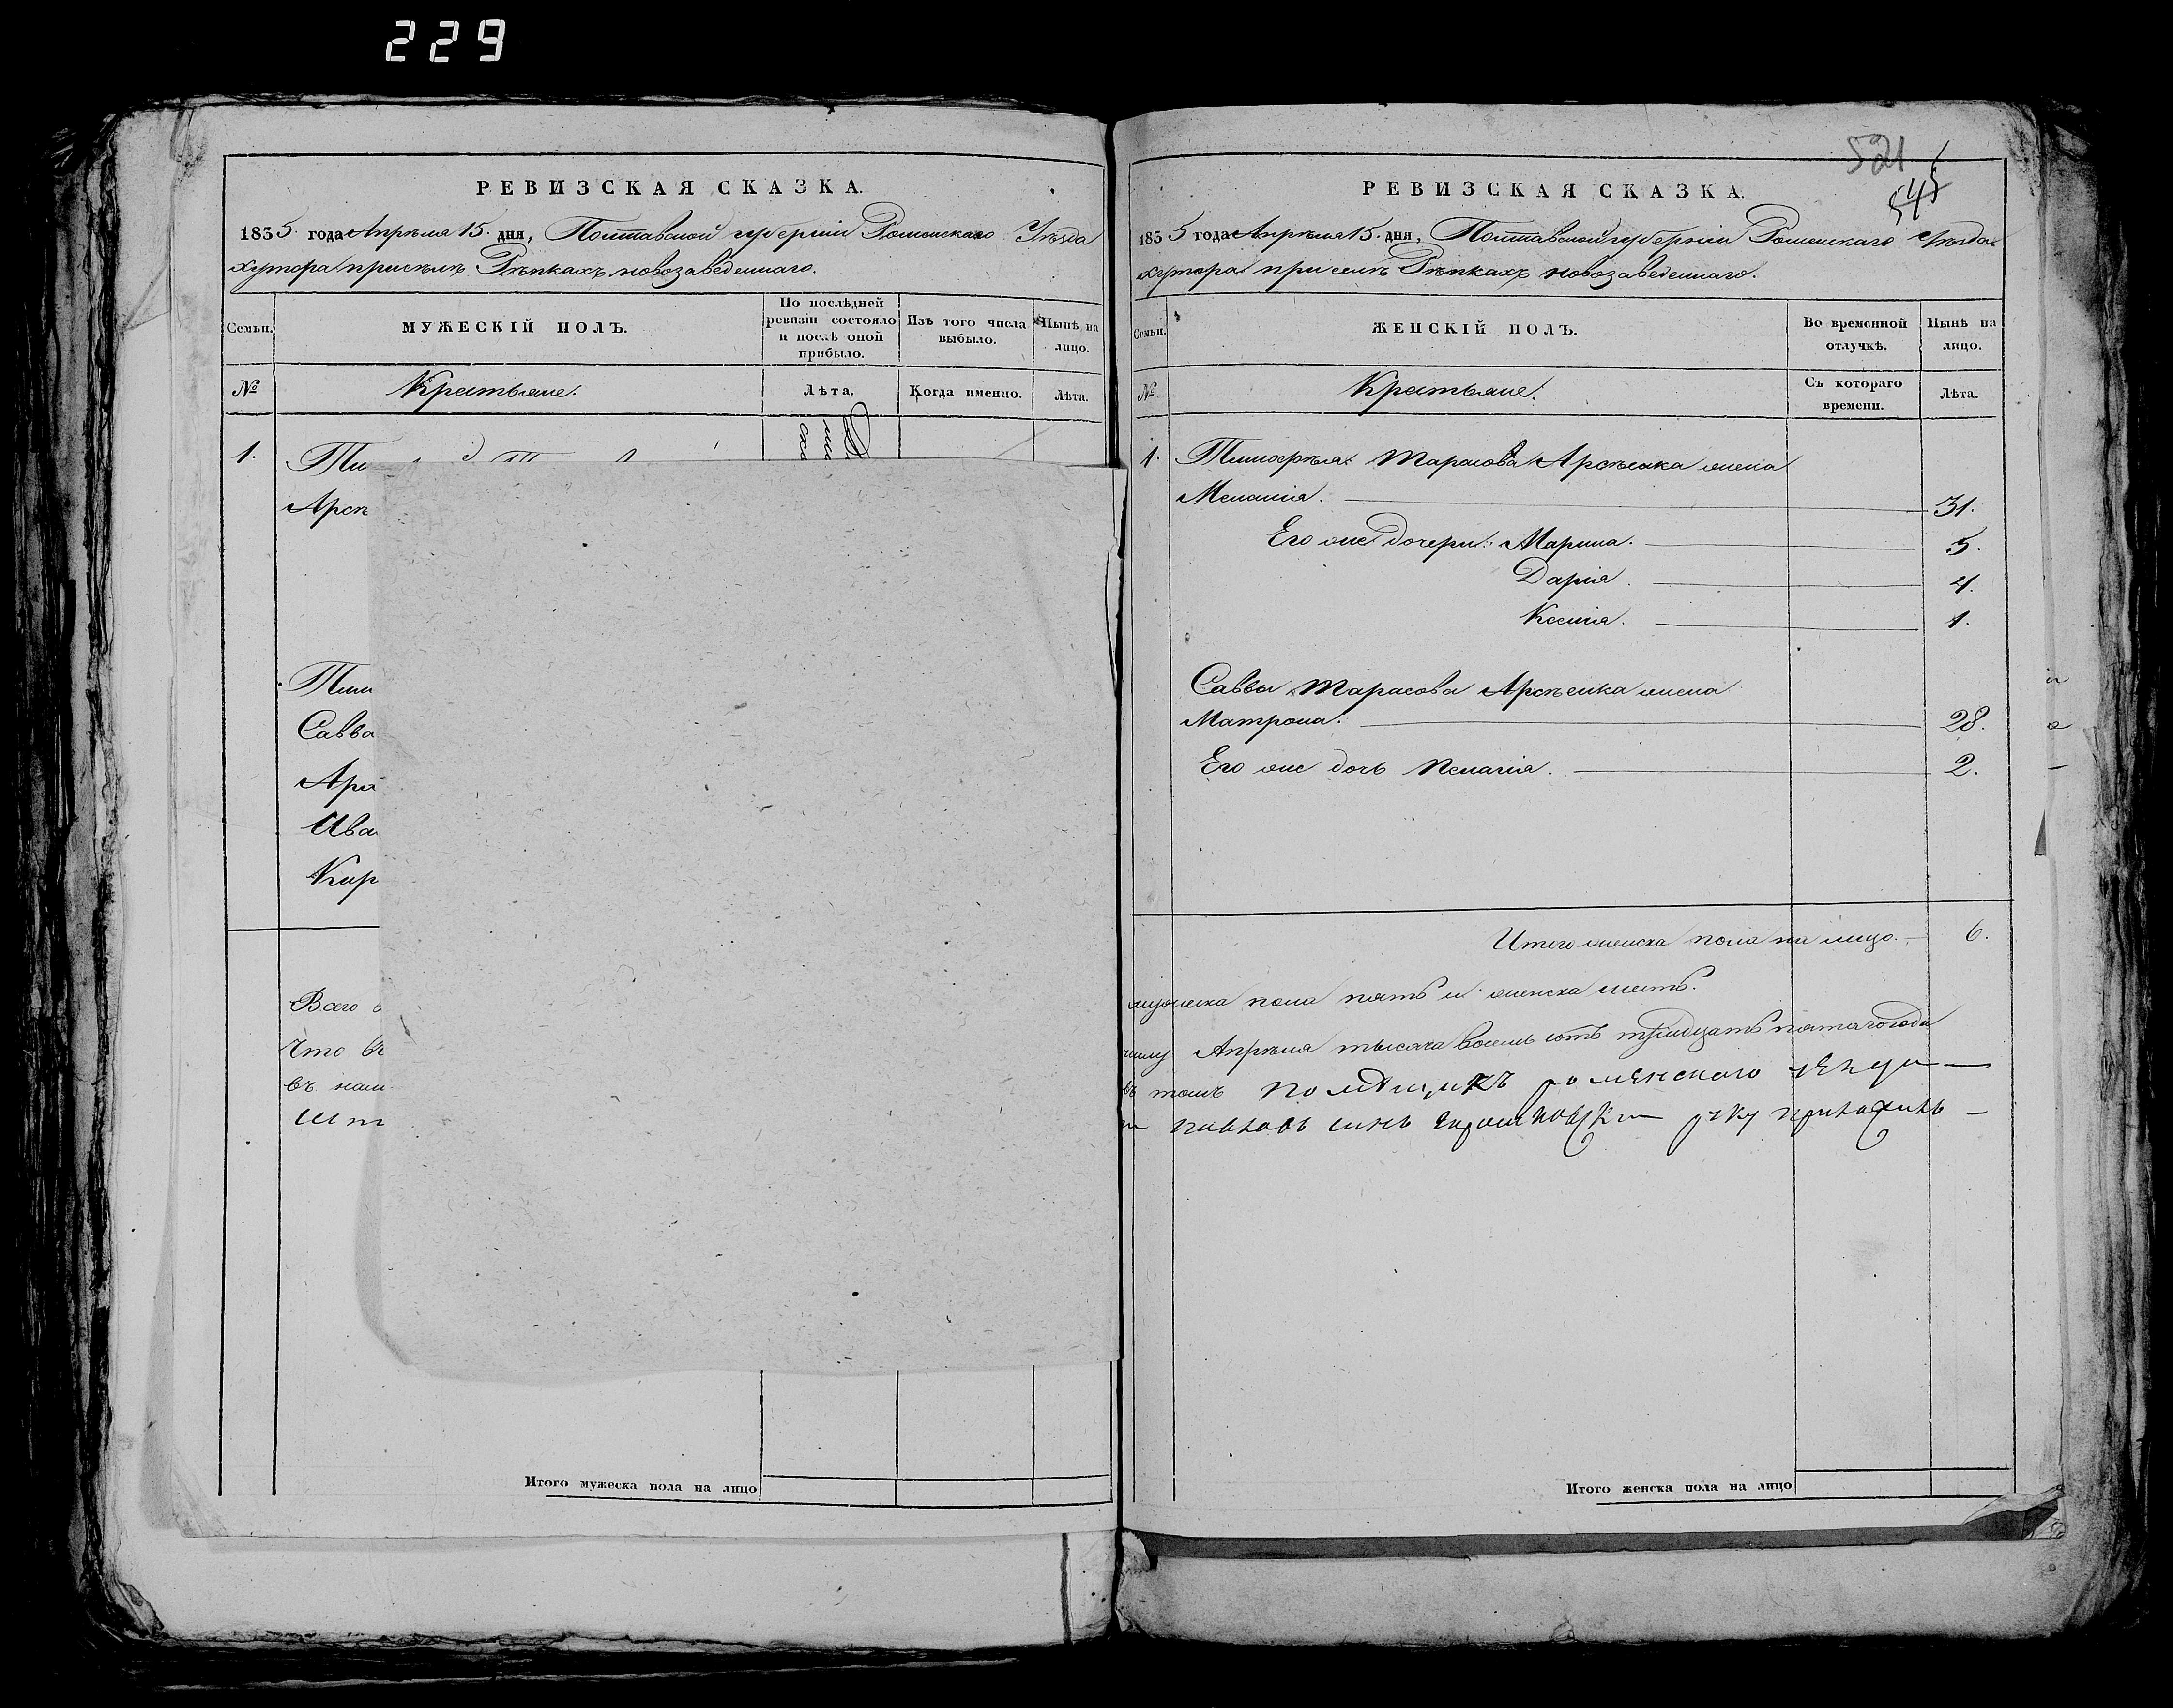 229
РЕВИЗСКАЯ СКАЗКА.
1835. года Апрѣля 15. дня, Полтавской губерніи Роменскаго Уѣзда
хутора присѣлѣ Рѣпкахъ новозаведеннаго.
Семьи.
МУЖЕСКІЙ ПОЛЪ.
По послѣдней ревизіи состояло и послѣ оной прибыло.
Изъ того числа выбыло.
Нынѣ на лицо.
№
Крестьяне.
Лѣта.
Когда именно.
Лѣта.
1.
Ти
Арсѣ
Тим
Савва
Ива
Кир
Всего
Что
въ
Итого мужеска пола на лицо
521
545
РЕВИЗСКАЯ СКАЗКА.
1835 года Апрѣля 15. дня, Полтавской губерніи Роменскаго Уѣзда
хутора при селѣ Рѣпкахъ новозаведеннаго.
Семьи.
ЖЕНСКІЙ ПОЛЪ.
Во временной отлучкѣ.
Нынѣ на лицо.
№
Крестьяне.
Съ котораго времени.
Лѣта.
1. Тимофѣя Тарасова Арсѣенка жена
Меланія. 31.
Его же дочери: Марина. 5.
Дарія. 4.
Ксенія. 1.
Саввы Тарасова Арсѣенка жена
Матрона. 28.
Его же дочь Пелагія. 2.
Итого женска пола на лицо. 6.
мужеска пола пять и женска шесть.
Апрѣля тысяча восемь сотъ тридцать пятого года
въ томъ помѣщикъ роменского уезда
павловъ синъ руку приложилъ
Итого женска пола на лицо